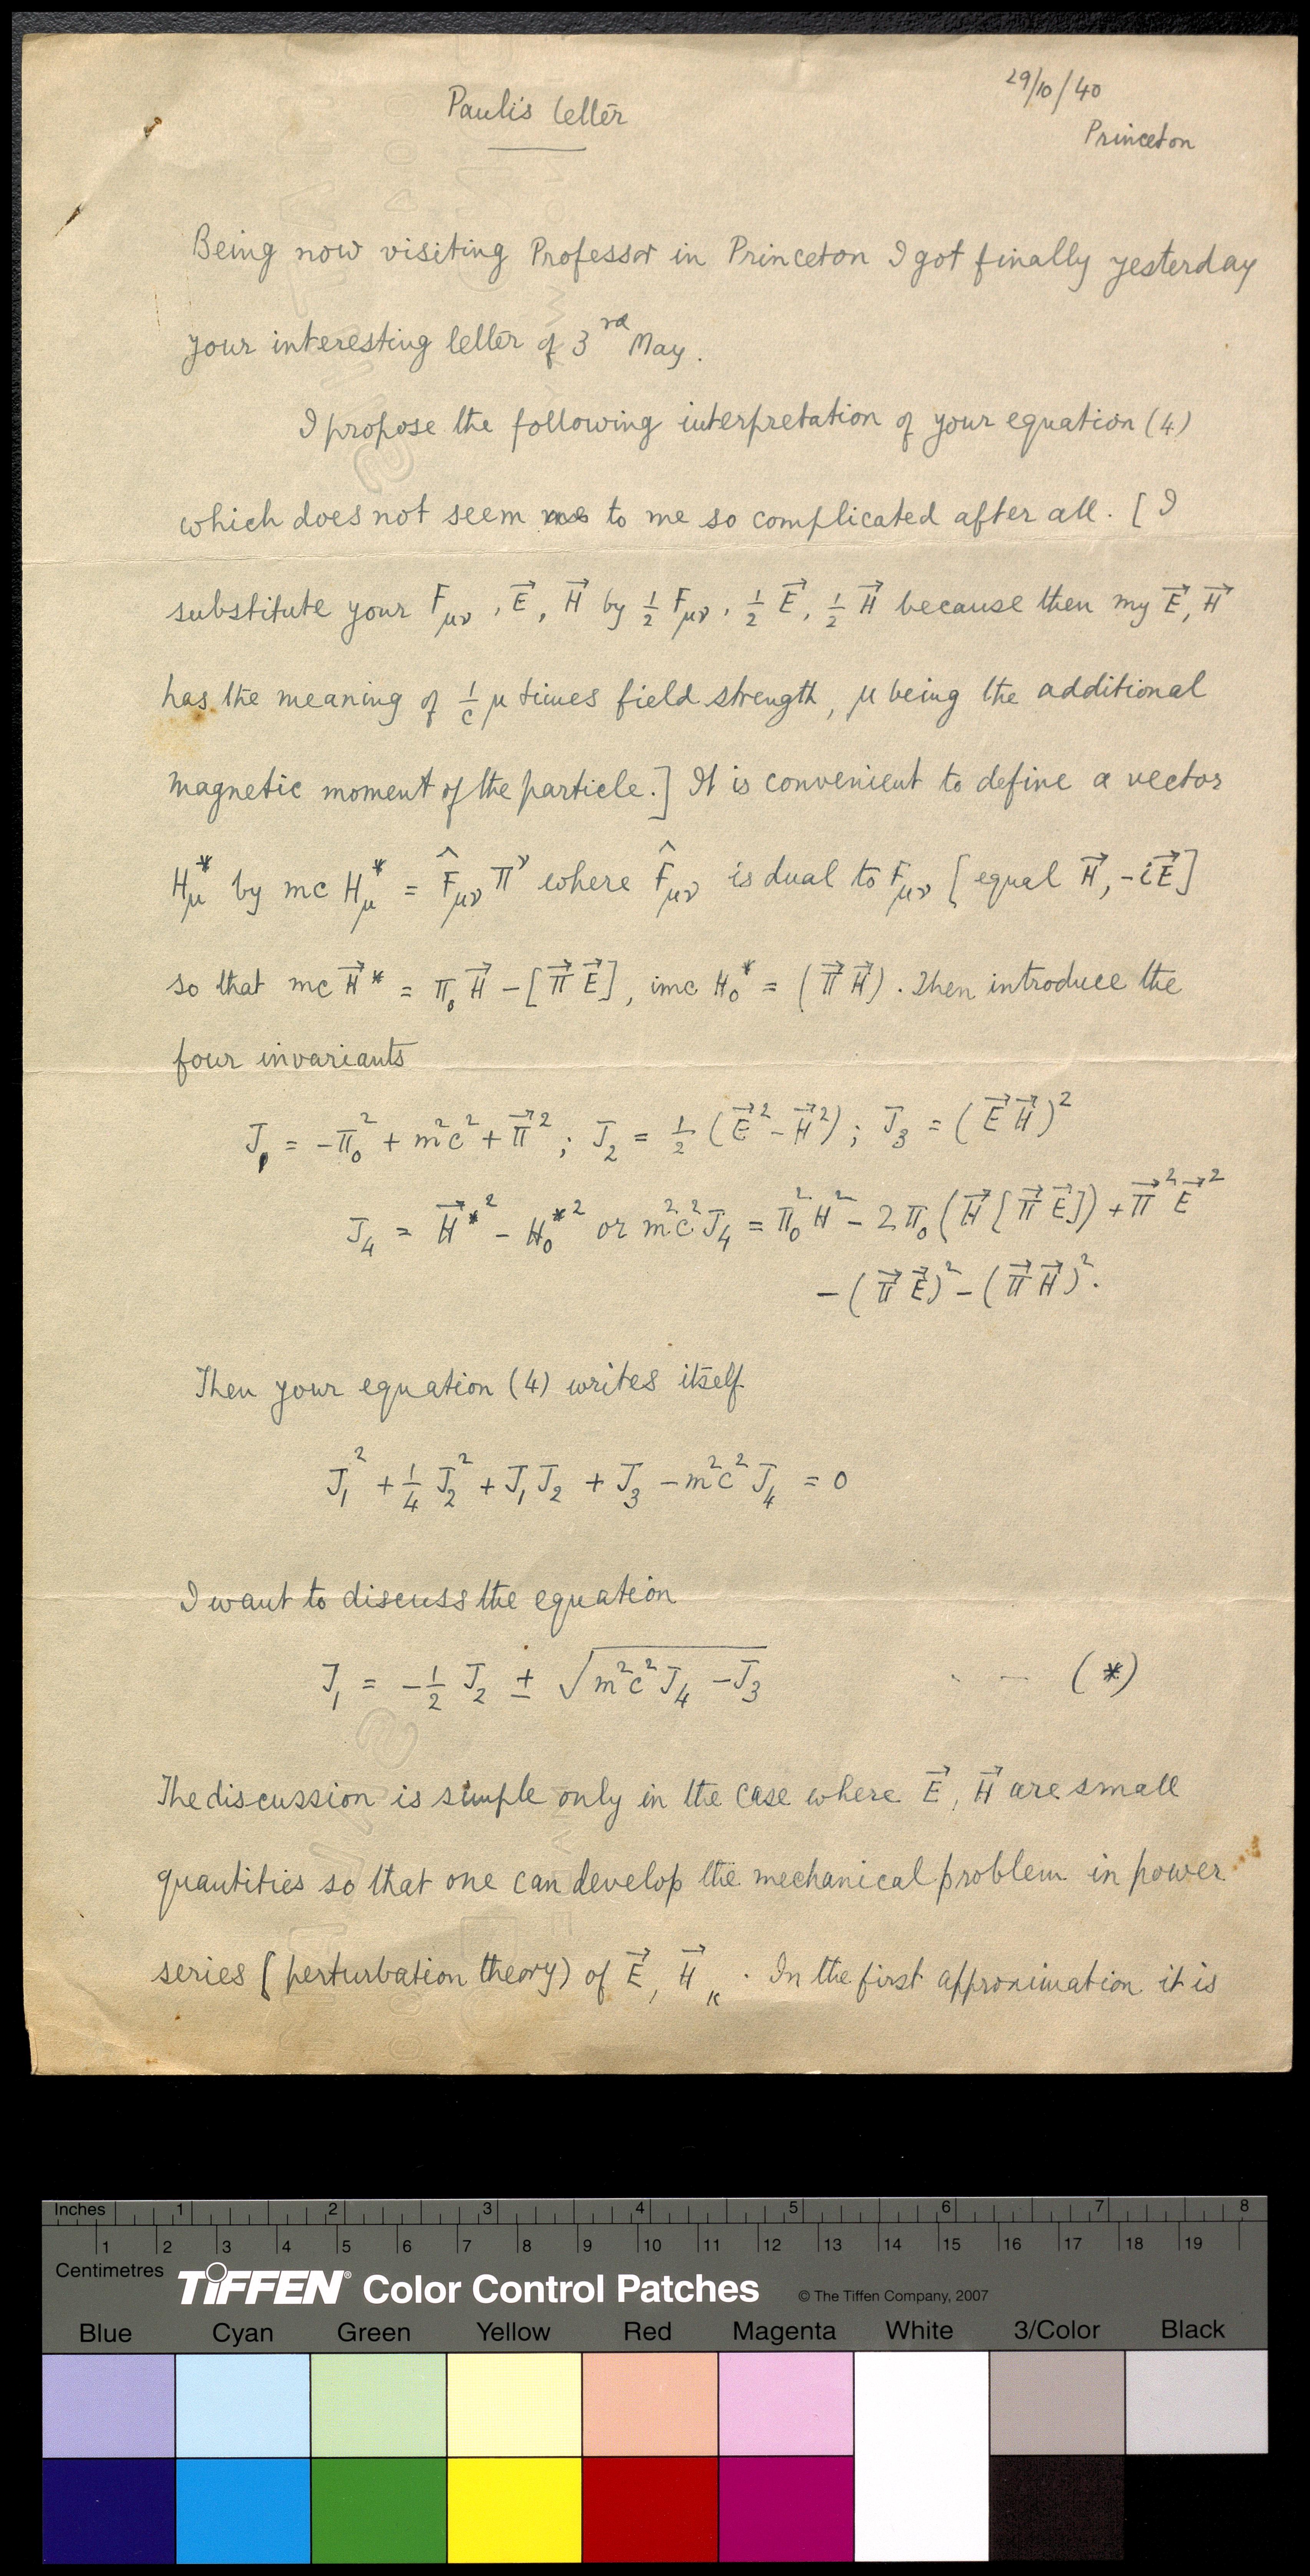 Pauli's letter
29/10/40
Princeton
Being now visiting Professor in Princeton I got finally yesterday
your interesting letter of 3rd May.
I propose the following interpretation of your equation (4)
which does not seem to me so complicated after all. [ I
substitute your F_μν, E⃗, H⃗ by ½ F_μν, ½ E⃗, ½ H⃗ because then my E⃗, H⃗
has the meaning of 1/c μ times field strength, μ being the additional
magnetic moment of the particle.] It is convenient to define a vector
H*_μ by mc H*_μ = F̂_μν Π^ν where F̂_μν is dual to F_μν [equal H⃗, -iE⃗]
so that mc H⃗* = π₀ H⃗ - [π⃗ E⃗], imc H₀* = (π⃗ H⃗). Then introduce the
four invariants
J₁ = -π₀² + m²c² + π⃗²; J₂ = ½ (E⃗² - H⃗²); J₃ = (E⃗ H⃗)²
J₄ = H⃗*² - H₀*² or m²c² J₄ = π₀² H² - 2π₀ (H⃗ [π⃗ E⃗]) + π⃗² E⃗²
- (π⃗ E⃗)² - (π⃗ H⃗)².
Then your equation (4) writes itself
J₁² + ¼ J₂² + J₁J₂ + J₃ - m²c² J₄ = 0
I want to discuss the equation
J₁ = -½ J₂ ± √(m²c² J₄ - J₃) . - (*)
The discussion is simple only in the case where E⃗, H⃗ are small
quantities so that one can develop the mechanical problem in power
series (perturbation theory) of E⃗, H⃗. In the first approximation it is
Inches 1 2 3 4 5 6 7 8
1 2 3 4 5 6 7 8 9 10 11 12 13 14 15 16 17 18 19
Centimetres
TIFFEN® Color Control Patches © The Tiffen Company, 2007
Blue Cyan Green Yellow Red Magenta White 3/Color Black